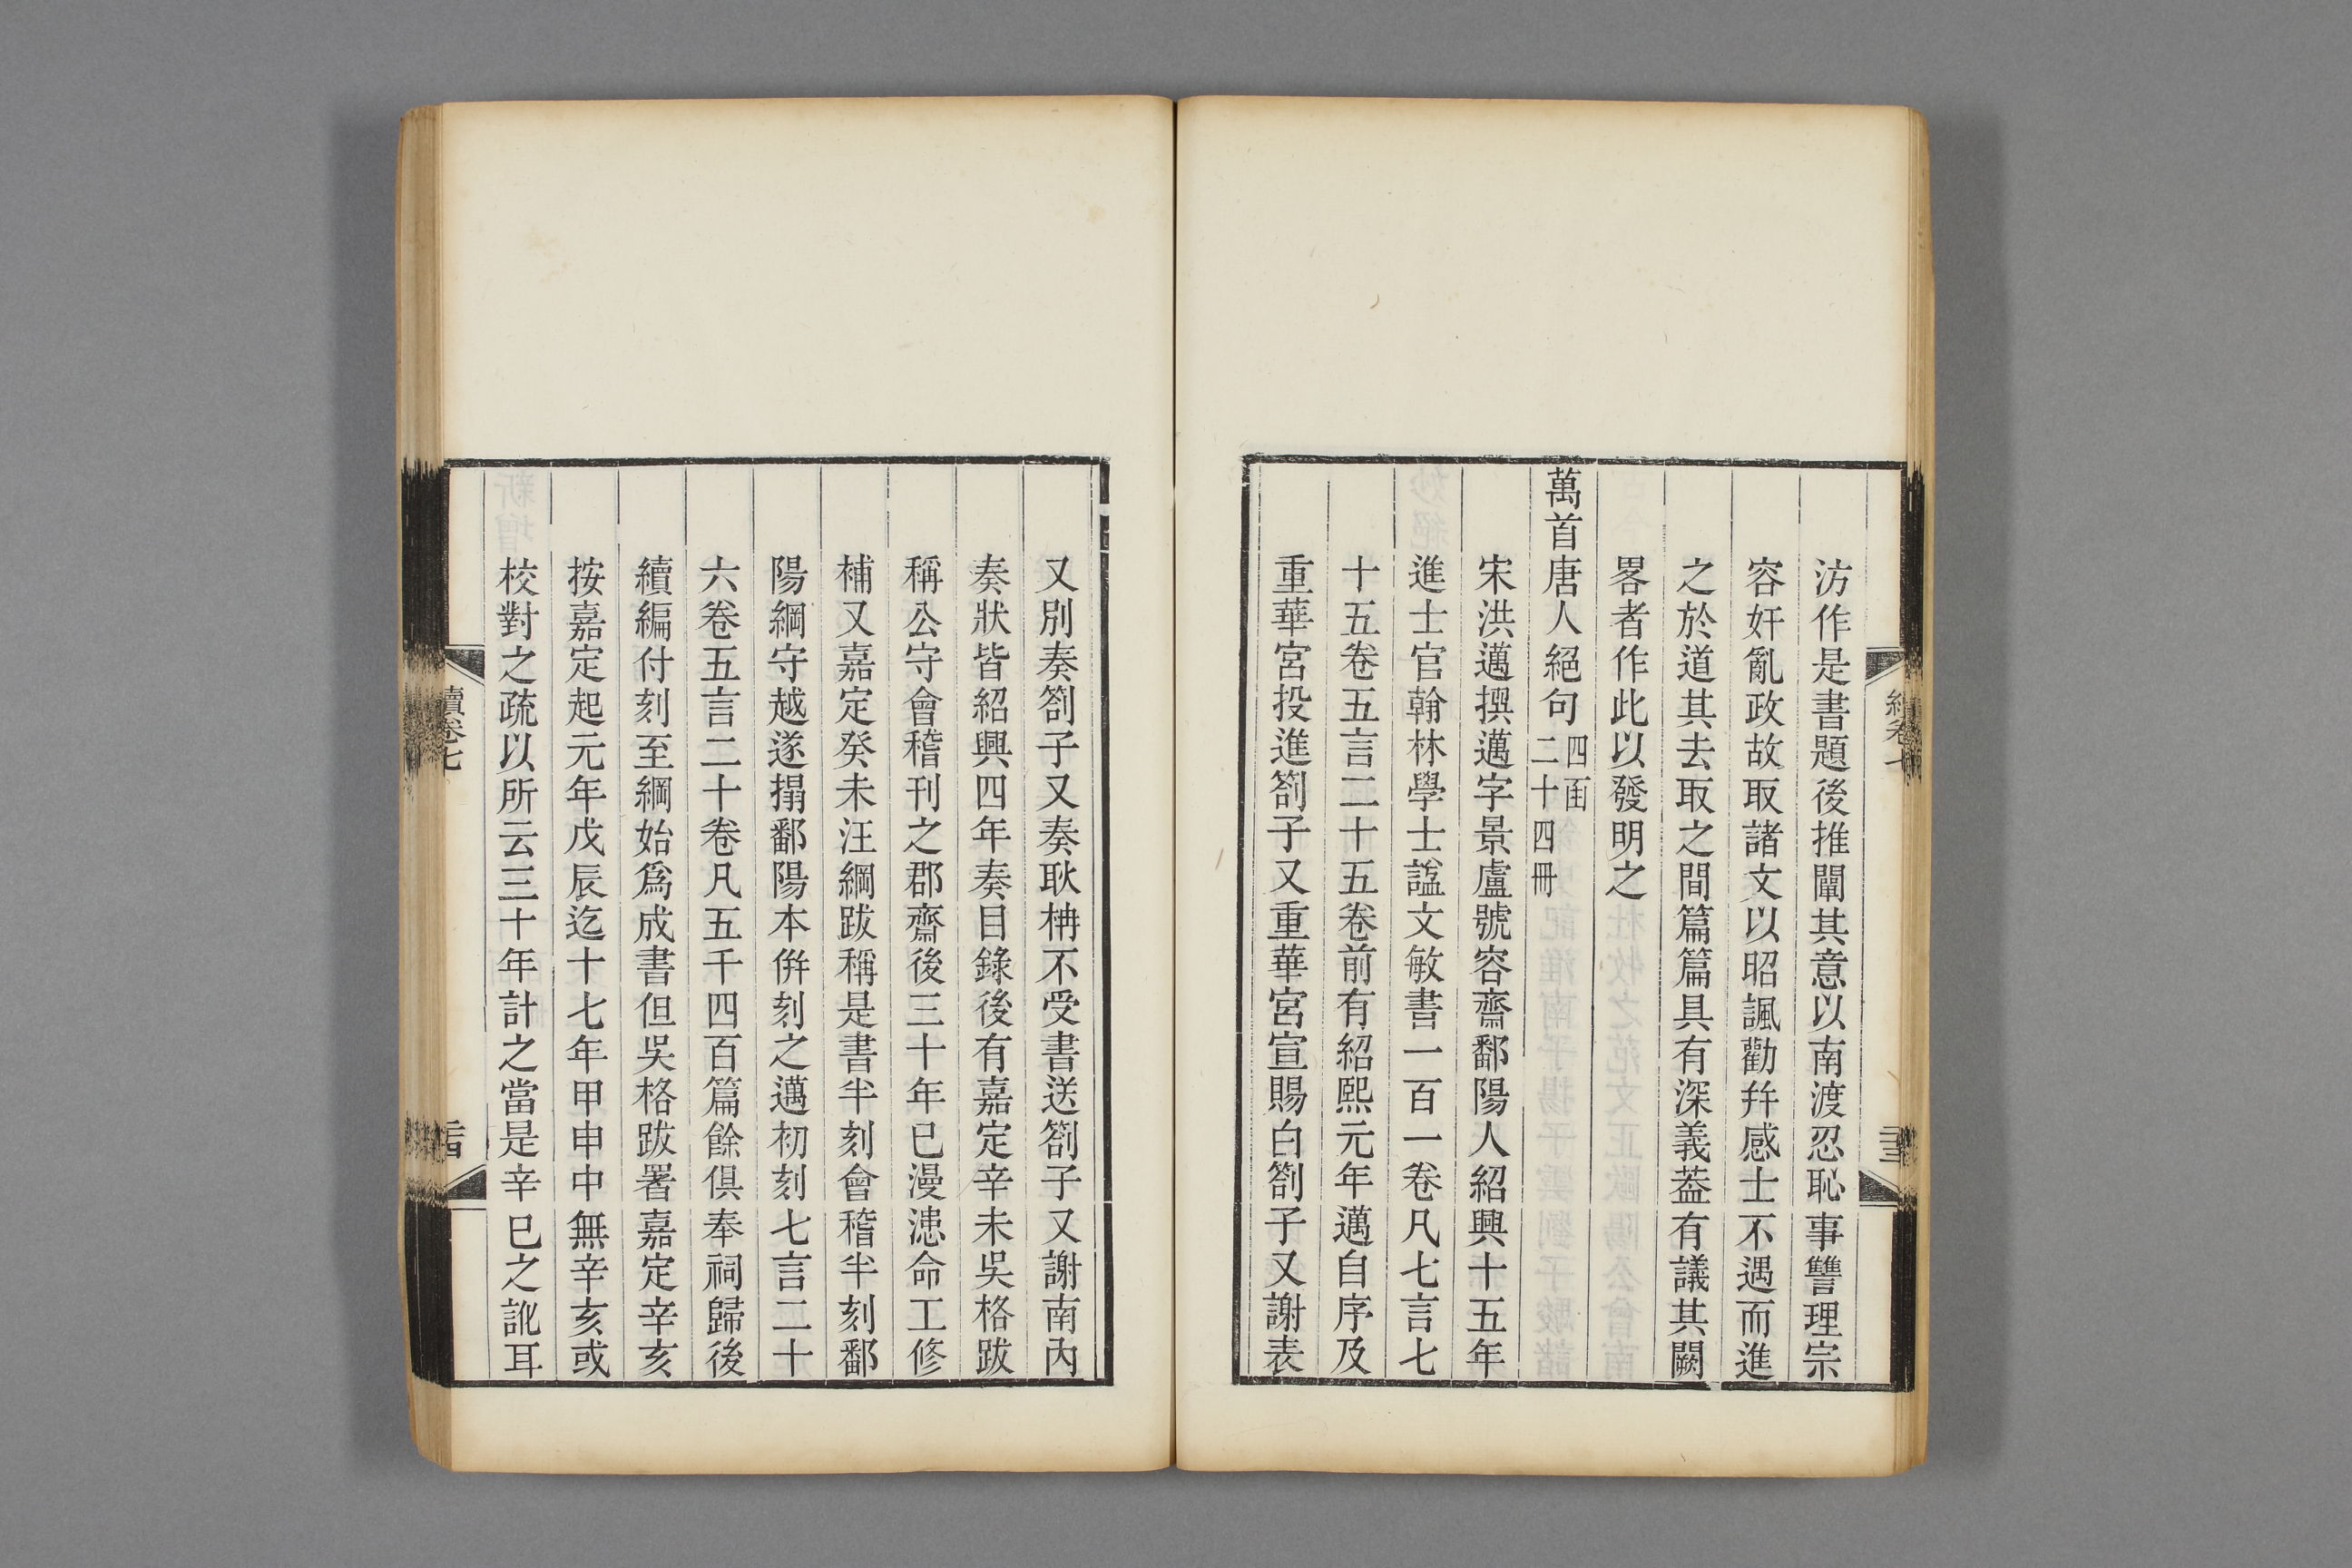 汸作是書題後推闡其意以南渡忍恥事讐理宗
容奸亂政故取諸文以昭諷勸幷感士不遇而進
之於道其去取之間篇篇具有深義葢有議其闕
畧者作此以發明之
萬首唐人絕句四函二十四冊
宋洪邁撰邁字景盧號容齋鄱陽人紹興十五年
進士官翰林學士諡文敏書一百一卷凡七言七
十五卷五言二十五卷前有紹熙元年邁自序及
重華宮投進劄子又重華宮宣賜白劄子又謝表
又別奏劄子又奏耿柟不受書送劄子又謝南內
奏狀皆紹興四年奏目錄後有嘉定辛未吳格跋
稱公守會稽刊之郡齋後三十年已漫漶命工修
補又嘉定癸未汪綱跋稱是書半刻會稽半刻鄱
陽綱守越遂搨鄱陽本倂刻之邁初刻七言二十
六卷五言二十卷凡五千四百篇餘俱奉祠歸後
續編付刻至綱始爲成書但吳格跋署嘉定辛亥
按嘉定起元年戊辰迄十七年甲申中無辛亥或
校對之疏以所云三十年計之當是辛巳之訛耳
續卷七